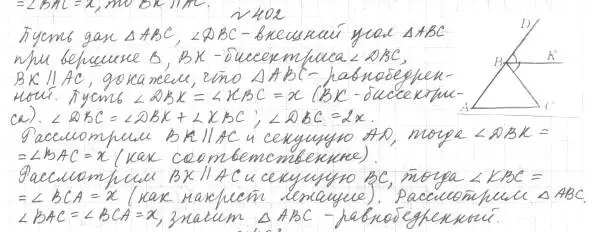 = ∠BAC = x, то BK || AC.
№402
Пусть дан △ABC, ∠DBC - внешний угол △ABC
при вершине B, BK - биссектриса ∠DBC,
BK || AC, докажем, что △ABC - равнобедрен-
ный. Пусть ∠DBK = ∠KBC = x (BK - биссектри-
са). ∠DBC = ∠DBK + ∠KBC; ∠DBC = 2x.
Рассмотрим BK || AC и секущую AD, тогда ∠DBK =
= ∠BAC = x (как соответственные).
Рассмотрим BK || AC и секущую BC, тогда ∠KBC =
= ∠BCA = x (как накрест лежащие). Рассмотрим △ABC.
∠BAC = ∠BCA = x, значит △ABC - равнобедренный.
D
B
K
A
C